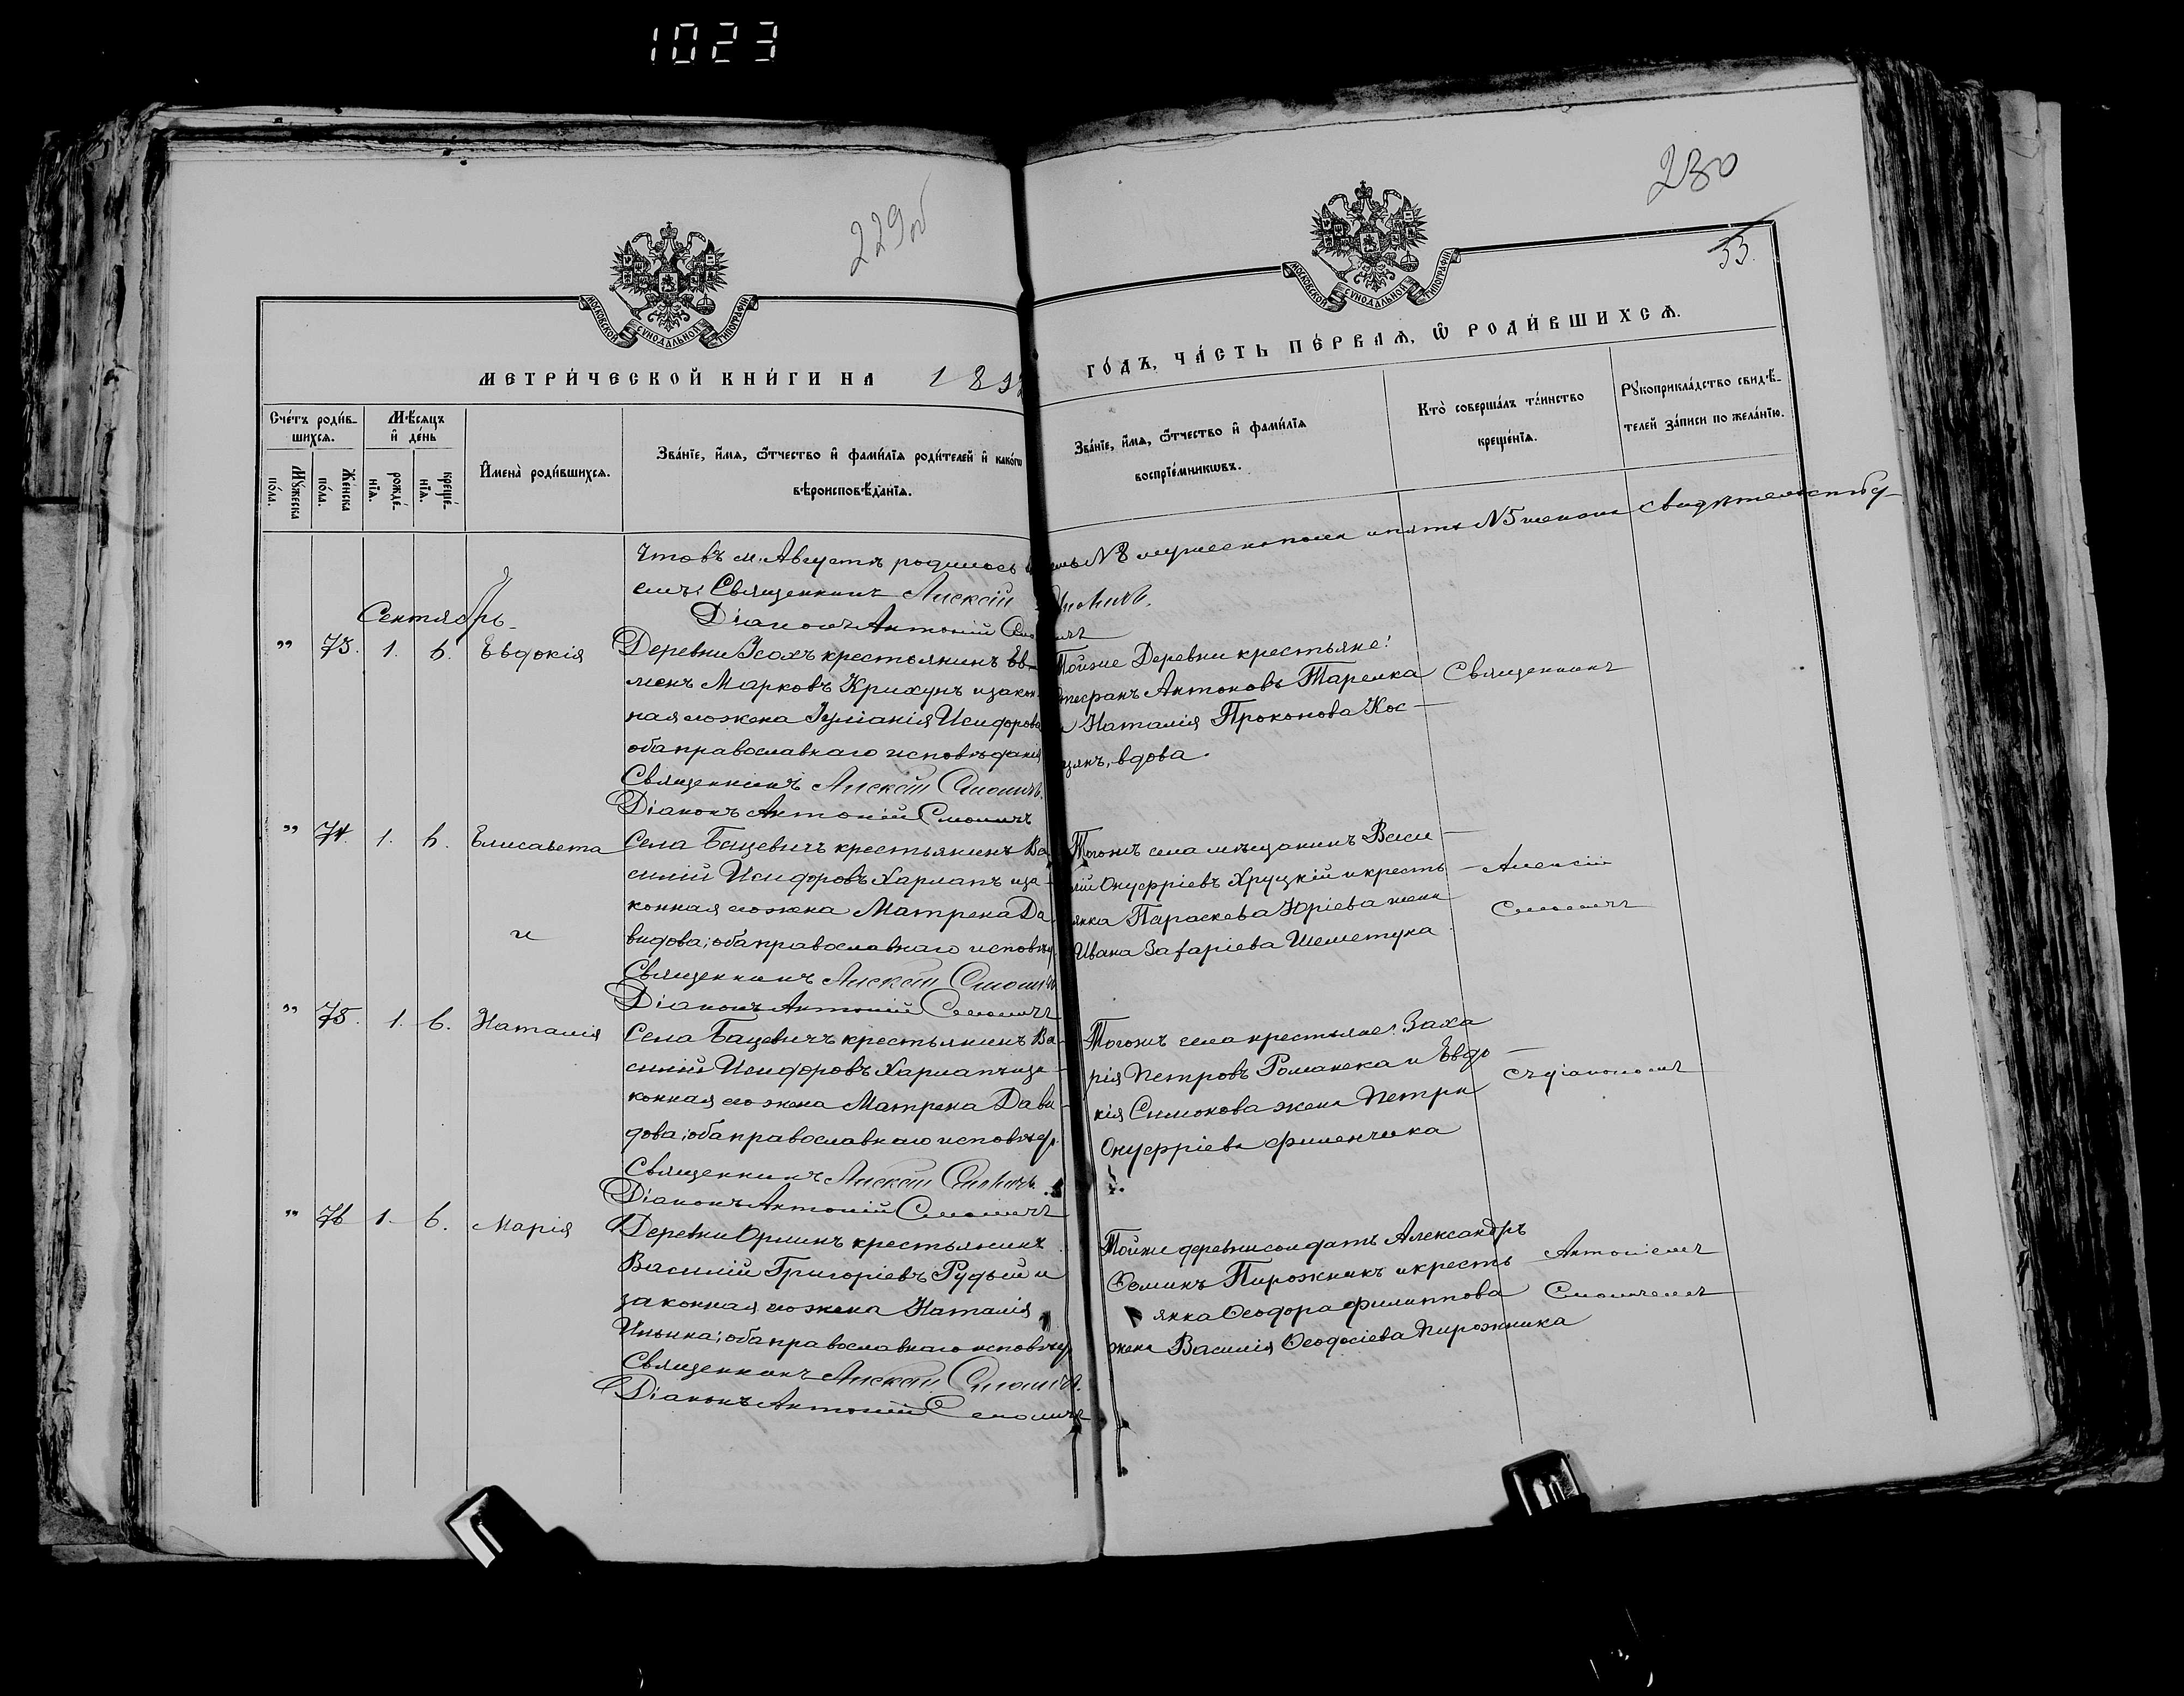 1023
229об
230
33.
МОСКОВСКОЙ СѴНОДАЛЬНОЙ ТИПОГРАФІИ
МОСКОВСКОЙ СѴНОДАЛЬНОЙ ТИПОГРАФІИ
МЕТРИ́ЧЕСКОЙ КНИ́ГИ НА 189
ГО́ДЪ, ЧА́СТЬ ПЕ́РВАѦ, Ѿ РОДИ́ВШИХСѦ.
Сче́тъ роди́в-
шихсѧ.
Мꙋ́жеска
по́ла.
Же́нска
по́ла.
Мѣ́сѧцъ
и҆ де́нь
рожде́-
нїѧ.
креще́-
нїѧ.
И҆мена̀ роди́вшихсѧ.
Зва́нїе, и҆́мѧ, ѻ҆́тчество и҆ фамѝлїѧ роди́телей и҆ како́гѡ
вѣроисповѣ́данїѧ.
Зва́нїе, и҆́мѧ, ѻ҆́тчество и҆ фами́лїѧ
воспрїе́мникѡвъ.
Кто̀ соверша́лъ та́инство
креще́нїѧ.
Рꙋкоприкла́дство свидѣ́-
телей за́писи по жела́нїю.
Что въ м. Августѣ родилось восемь №8 мужеска пола и пять №5 женска свидѣтельству-
емъ: Священникъ Алексій Смоличъ.
Діаконъ Антоній Смоличъ
Сентябрь
" 73. 1. 6. Евдокія
Деревни Усохъ крестьянинъ Ев-
менъ Марковъ Крихунъ и закон-
ная его жена Іуліанія Исидорова
оба православнаго исповѣданія
Священникъ Алексій Смоличъ.
Діаконъ Антоній Смоличъ
Тойже Деревни крестьяне:
Стефанъ Антоновъ Тарелка
и Наталія Прокопова Кос-
цянъ, вдова.
Священникъ
" 74. 1. 6. Елисавета
Села Бацевичъ крестьянинъ Ва-
силій Исидоровъ Харлапъ и за-
конная его жена Матрена Да-
видова; оба православнаго исповѣд.
Священникъ Алексій Смоличъ
Діаконъ Антоній Смоличъ
Тогожъ села мѣщанинъ Васи-
лій Онуфріевъ Хруцкій и кресть-
янка Параскева Юріева жена
Ивана Захаріева Шеметука
Алексій
Смоличъ
и
" 75. 1. 6. Наталія
Села Бацевичъ крестьянинъ Ва-
силій Исидоровъ Харлапъ и за-
конная его жена Матрена Дави-
дова; оба православнаго исповѣд.
Священникъ Алексій Смоличъ.
Діаконъ Антоній Смоличъ
Тогожъ села крестьяне: Заха
рія Петровъ Романека и Евдо-
кія Симонова жена Петра
Онуфріева Филенчика
съ діакономъ
" 76 1. 6. Марія
Деревни Орлинъ крестьянинъ
Василій Григоріевъ Рудый и
законная его жена Наталія
Ильина; оба православнаго исповѣд
Священникъ Алексій Смоличъ.
Діаконъ Антоній Смоличъ
Тойже деревни солдатъ Александръ
Ѳоминъ Пирожникъ и кресть
янка Ѳеодора Филиппова
жена Василія Ѳеодосіева Пирожника
Антоніемъ
Смоличемъ